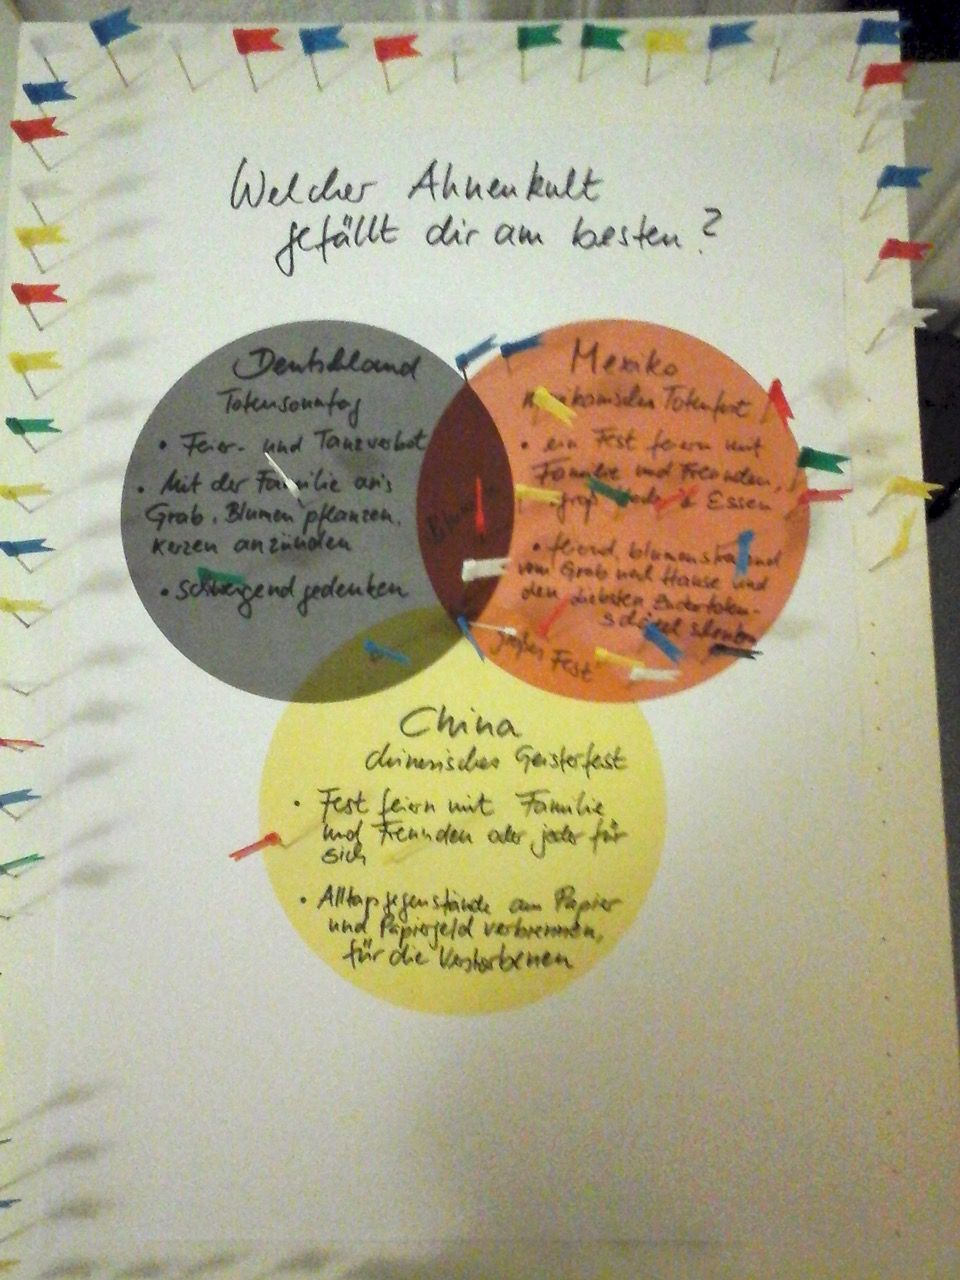 Welcher Ahnenkult
gefällt dir am besten?
Deutschland
Totensonntag
• Feier- und Tanzverbot
• Mit der Familie an's
Grab, Blumen pflanzen,
Kerzen anzünden
• schweigend gedenken
Mexiko
Totenfest
• ein Fest feiern mit
Familie und Freunden,
Essen
• feiernd, blumenstreuend
vom Grab nach Hause und
den liebsten Zuckertoten-
schädel schenken
großes Fest
China
chinesisches Geisterfest
• Fest feiern mit Familie
und Freunden oder jeder für
sich
• Alltagsgegenstände aus Papier
und Papiergeld verbrennen,
für die Verstorbenen